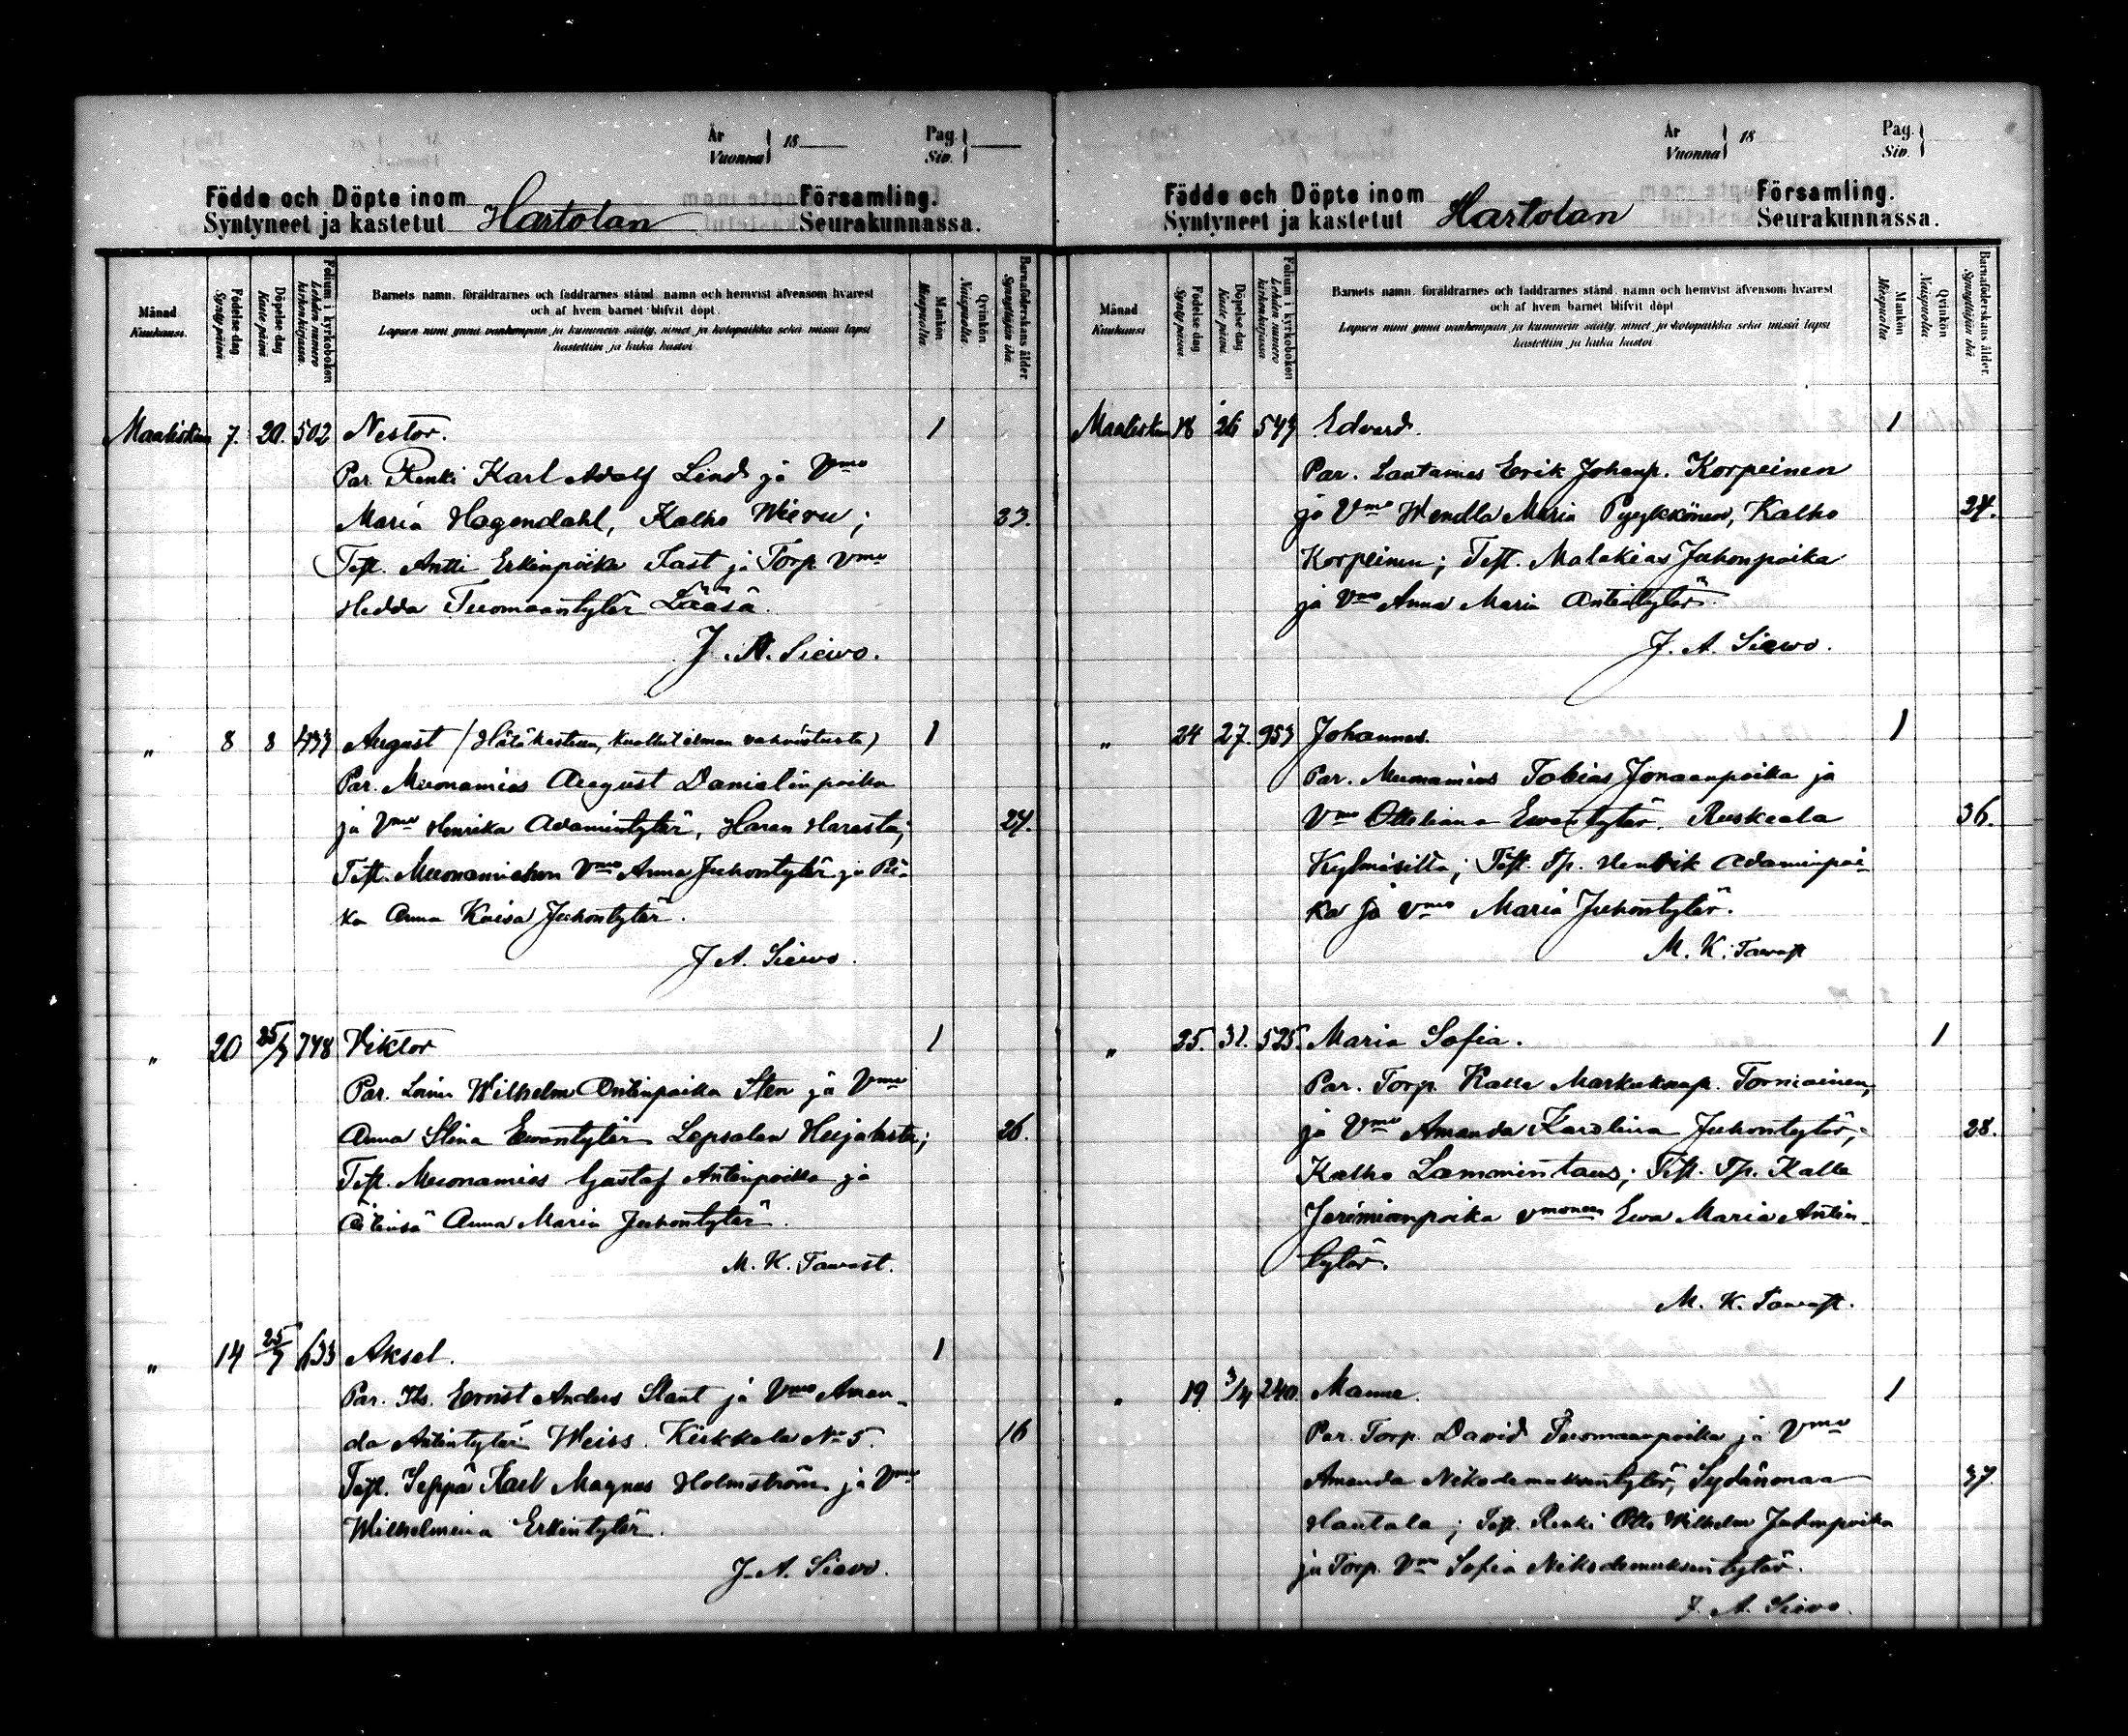 År
Vuonna } 18
Pag.
Siv. }
Födde och Döpte inom Församling.
Syntyneet ja kastetut Hartolan Seurakunnassa.
Månad
Kuukausi.
Födelse dag
Synty päivä.
Döpelse dag
Kaste päivä
Folium i kyrkoboken
Lehden numero kirkonkirjassa.
Barnets namn, föräldrarnes och faddrarnes stånd, namn och hemvist äfvensom hvarest
och af hvem barnet blifvit döpt.
Lapsen nimi ynnä vanhempain ja kummein sääty, nimet ja kotopaikka sekä missä lapsi
kastettiin ja kuka kastoi
Mankön
Miespuolia.
Qvinkön
Naispuolia.
Barnaföderskans ålder
Synnyttäjän ikä.
Maaliskuu 7. 20. 502 Nestor. 1
Par. Renki Karl Adolf Lind ja Vmo
Maria Hagendahl, Kalho Wieru; 33.
Test. Antti Erkinpoika Fast ja Torp. Vmo
Hedda Tuomaantytär Lääsä.
J. A. Siewo.
" 8 8 433 August (Hätäkasteen, kuollut ilman vahvistusta) 1
Par. Muonamies August Danielinpoika
ja Vmo Henrika Adamintytär, Haran Harasta; 24.
Test. Muonamiehen Vmo Anna Juhontytär ja Pii-
ka Anna Kaisa Juhontytär.
J. A. Siewo.
" 20 25/3 748 Viktor 1
Par. Wilhelm Antinpoika Sten ja Vmo
Anna Stina Ewantytär Lepsalan Heijakasta; 26.
Test. Muonamies Gustaf Antinpoika ja
Äitinsä Anna Maria Juhontytär.
M. K. Tawast.
" 14 25/3 633 Aksel. 1
Par. Its. Ernst Anders Slant ja Vmo Aman-
da Antintytär Weiss. Kirkkola No 5. 16
Test. Seppä Karl Magnus Holmström ja Vmo
Wilhelmina Erkintytär.
J. A. Siewo.
År
Vuonna } 18
Pag.
Siv. }
Födde och Döpte inom Församling.
Syntyneet ja kastetut Hartolan Seurakunnassa.
Månad
Kuukausi
Födelse dag
Synty päivä.
Döpelse dag
Kaste päivä
Folium i kyrkoboken
Lehden numero kirkonkirjassa
Barnets namn, föräldrarnes och faddrarnes stånd, namn och hemvist äfvensom hvarest
och af hvem barnet blifvit döpt
Lapsen nimi ynnä vanhempain ja kummein sääty, nimet ja kotopaikka sekä missä lapsi
kastettiin ja kuka kastoi
Mankön
Miespuolia.
Qvinkön
Naispuolia.
Barnaföderskans ålder.
Synnyttäjän ikä.
Maaliskuu 18 26 543 Edvard. 1
Par. Lautamies Erik Johanp. Korpeinen
ja Vmo Wendla Maria Pyykkönen, Kalho 24.
Korpeinen; Test. Malakias Juhonpoika
ja Vmo Anna Maria Antintytär.
J. A. Siewo.
" 24 27. 353 Johannes. 1
Par. Muonamies Tobias Jonaanpoika ja
Vmo Otteliana Ewantytär. Ruskeala 36.
Kylmäsilta; Test. Tp. Henrik Adaminpoi-
ka ja Vmo Maria Juhontytär.
M. K. Tawast
" 25. 31. 525. Maria Sofia. 1
Par. Torp. Kalle Markuksenp. Torniainen,
ja Vmo Amanda Karolina Juhontytär; 28.
Kalho Lammintaus; Test. Tp. Kalle
Jerimianpoika vmoneen Ewa Maria Antin-
tytär.
M. K. Tawast.
" 19. 3/4 240. Manne. 1
Par. Torp. David Tuomaanpoika ja Vmo
Amanda Nikodemuksentytär, Sydänmaa 37.
Hautala; Test. Renki Otto Wilhelm Juhonpoika
ja Torp. Vmo Sofia Nikodemuksentytär.
J. A. Siewo.